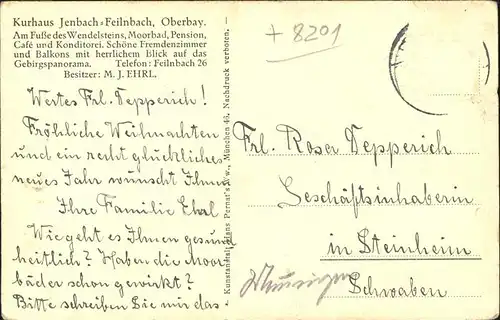 Kurhaus Jenbach-Feilnbach, Oberbay.
Am Fuße des Wendelsteins, Moorbad, Pension,
Café und Konditorei. Schöne Fremdenzimmer
und Balkons mit herrlichem Blick auf das
Gebirgspanorama. Telefon: Feilnbach 26
Besitzer: M. J. EHRL.
Wertes Frl. Depperich!
Fröhliche Weihnachten
und ein recht glückliches
neues Jahr wünscht Ihnen
Ihre Familie Ehrl
Wie geht es Ihnen gesund
heitlich? Haben die Moor
bäder schon gewirkt?
Bitte schreiben Sie mir das
Kunstanstalt Hans Pernat's Ww., München 46, Nachdruck verboten.
+ 8201
Frl. Rosa Depperich
Geschäftsinhaberin
in Steinheim
Schwaben